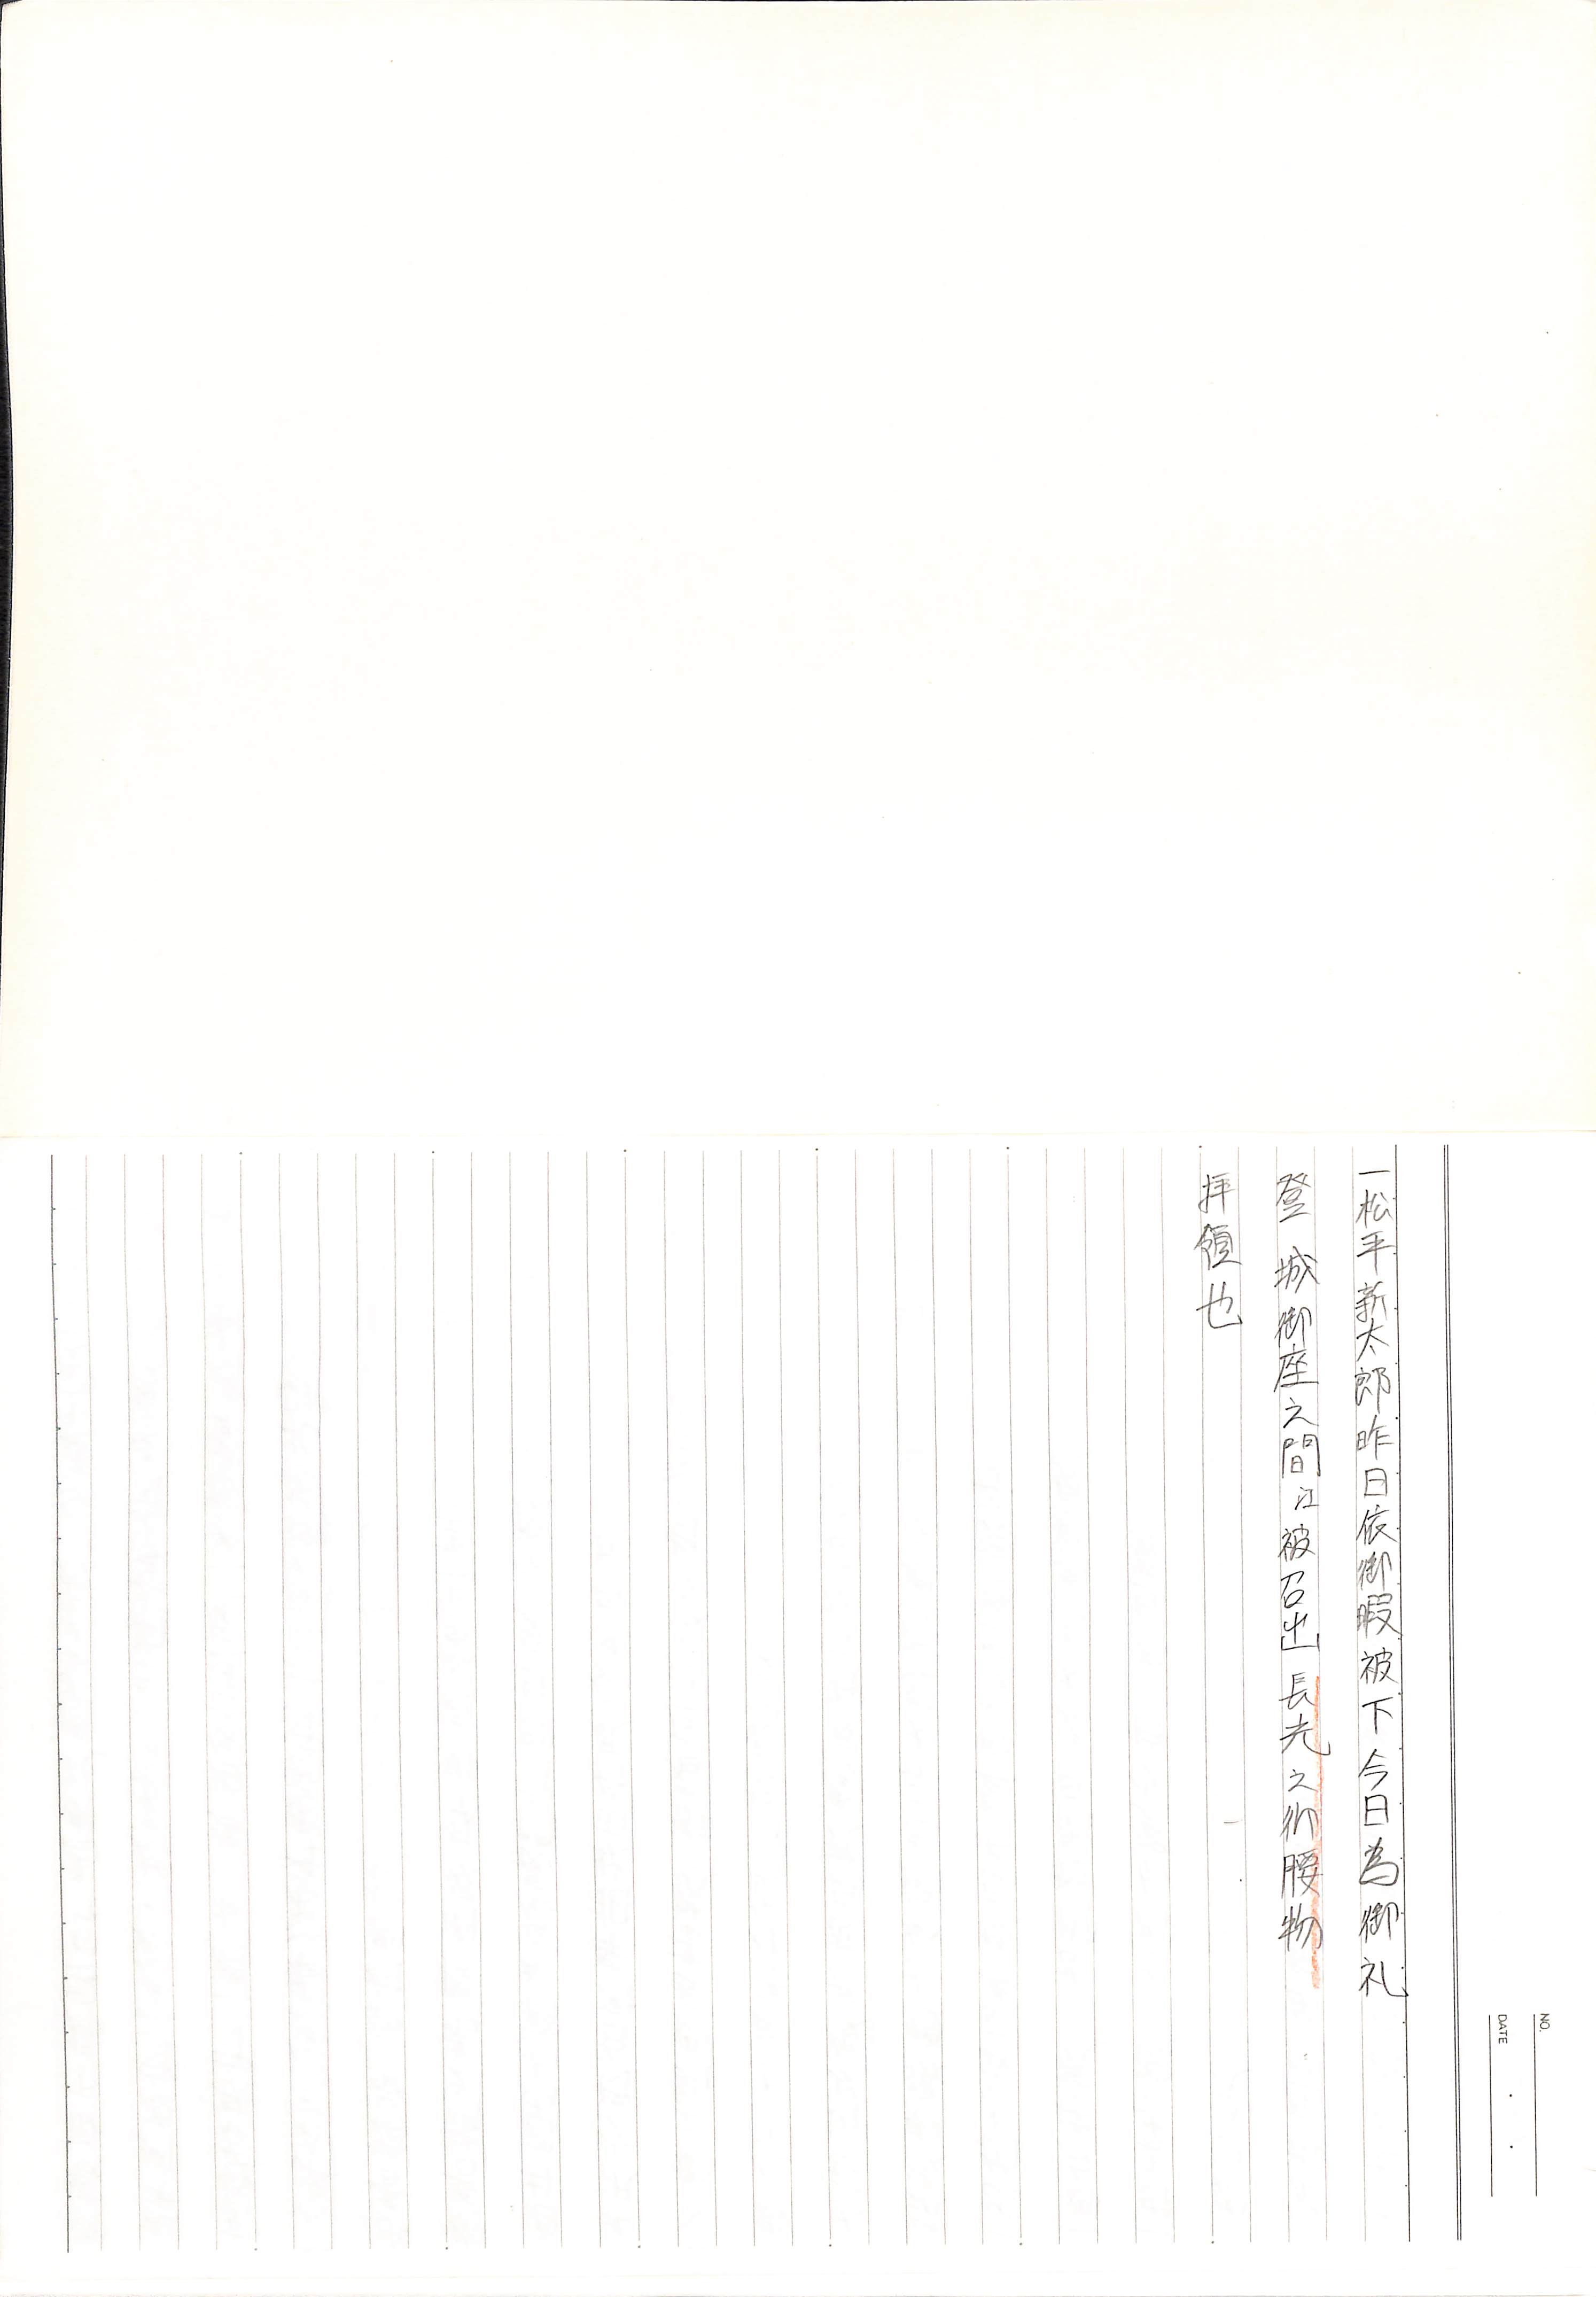 NO.
DATE
一松平新太郎昨日依御暇被下今日為御礼
登 城御座之間江被召出長光之御腰物
拝領也